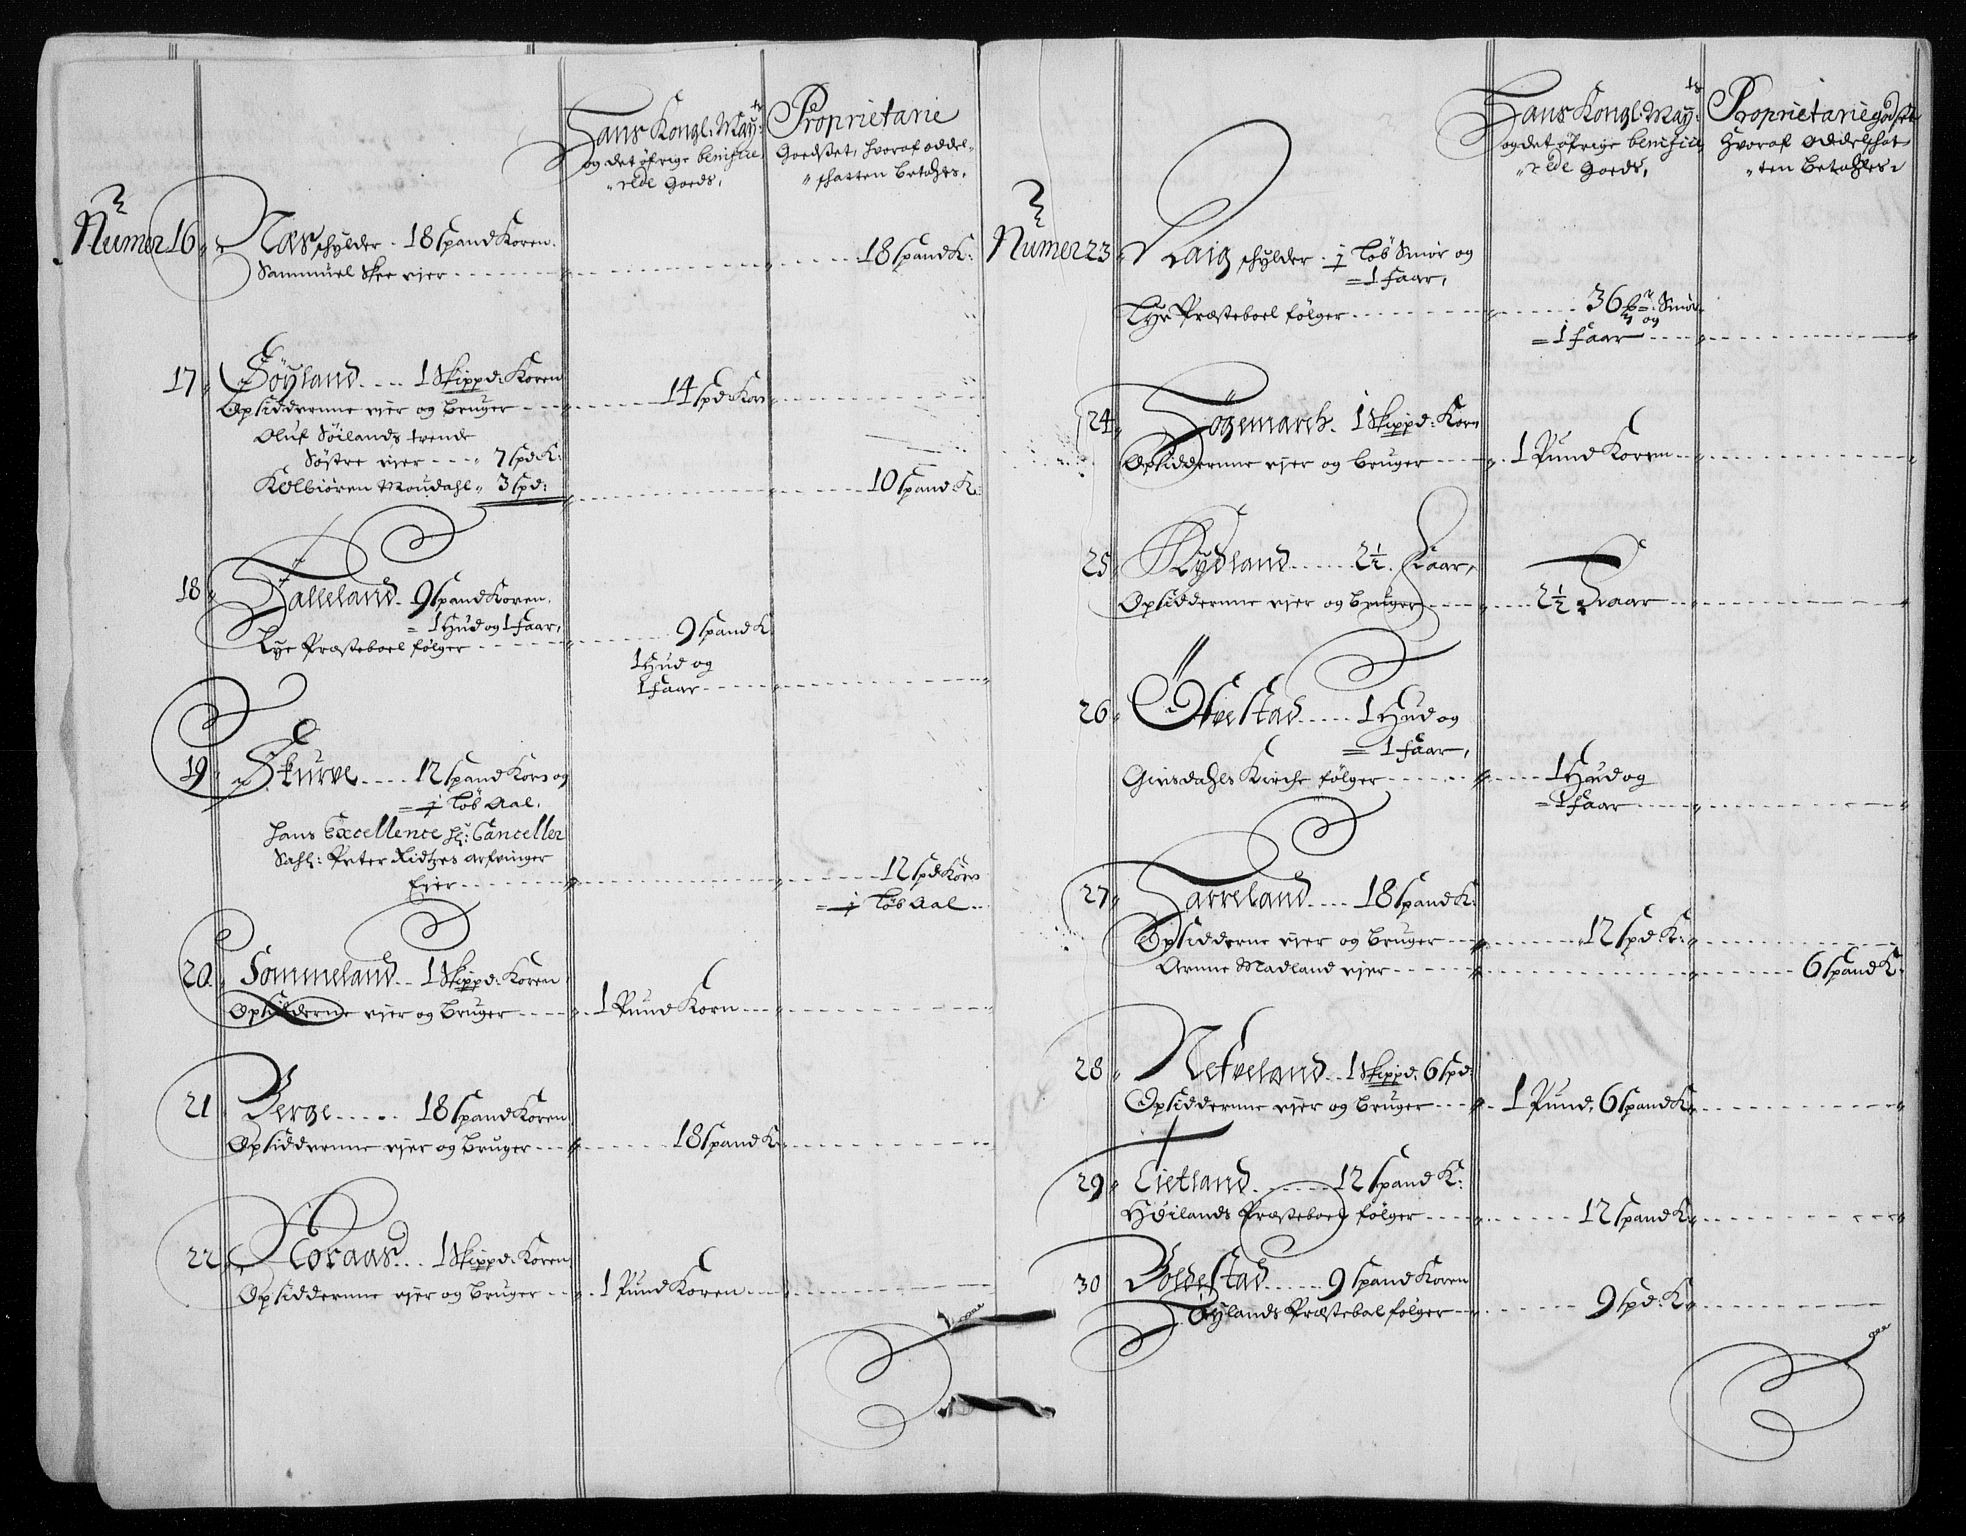 Hans Kongl: May:tz
og det øfrige benificie
rede Goeds,
Proprietarie
Goedset, hvoraf oddel-
schatten betahles,
Numer 16 Næs schylder. 18 Spand Koren.
Sammuel Skee eier 18 Spand K:
17 Söyland 1 Skippd: Koren
Opsidderenne eier og bruger 14 Spd: Korn
Oluf Söilands trende
Søstre eier 7 Spd K:
Kolbiören Moudahl 3 Spd: 10 Spand: K:
18 Lalleland. 9 Spand Koren.
= 1 Hud og 1 faar,
Lye Præsteboel følger 9 Spand K
1 Hud og
1 faar
19 Skurve 12 Spand Korn og
= j løb Aal.
Hans Excellence hr: Canceller
Sahl: Peter Ridtzes arfvinger
Eier 12 Spd Korn
= j løb Aal
20. Sömmeland 1 Skippd: Koren
Opsidderne eier og bruger 1 Pund Korn
21 Berge 18 Spand Koren
Opsidderenne eier og bruger 18 Spand K:
22 Aaraas 1 Skippd: Koren
Opsiddernne eier og bruger 1 Pund Koren
Hans Kongl: May:ts
og det øfrige benificie
rede Goeds,
Proprietariegodset
Hvoraf Oddelschat
ten betahles
Numer 23 schylder. j løb Smör og
= 1 faar,
Lye Præsteboel følger 36 Smör
og
= 1 faar
24 Högemarch. 1 Skippd: Korn
Opsiddernne eier og bruger 1 Pund Koren
25 Rydland 2½. faar,
Opsiddernne eier og bruger 2½ Faar
26 1 Hud og
= 1 faar,
Giesdahls Kirche følger 1 Hud og
= 1 faar
27 Tarreland 18 Spand K:
Opsidderne eier og bruger 12 Spd K:
Arnne Madland eier 6 Spand K
28 Nefveland 1 Skippd: 6 Spd:
Opsiddernne eier og bruger 1 Pund, 6 Spand K
29 Tietland 12 Spand K:
Höilands Præsteboel følger 12 Spand K
30 Boldestad 9 Spand Koren
Höylands Præstebol følger 9 Spd: K